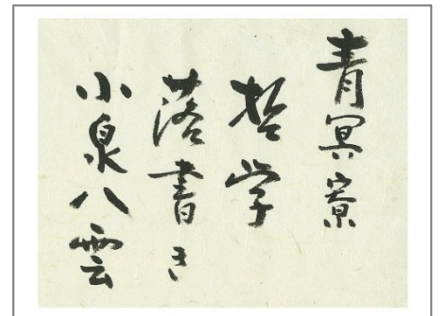 青冥寮
哲学
落書き
小泉八雲